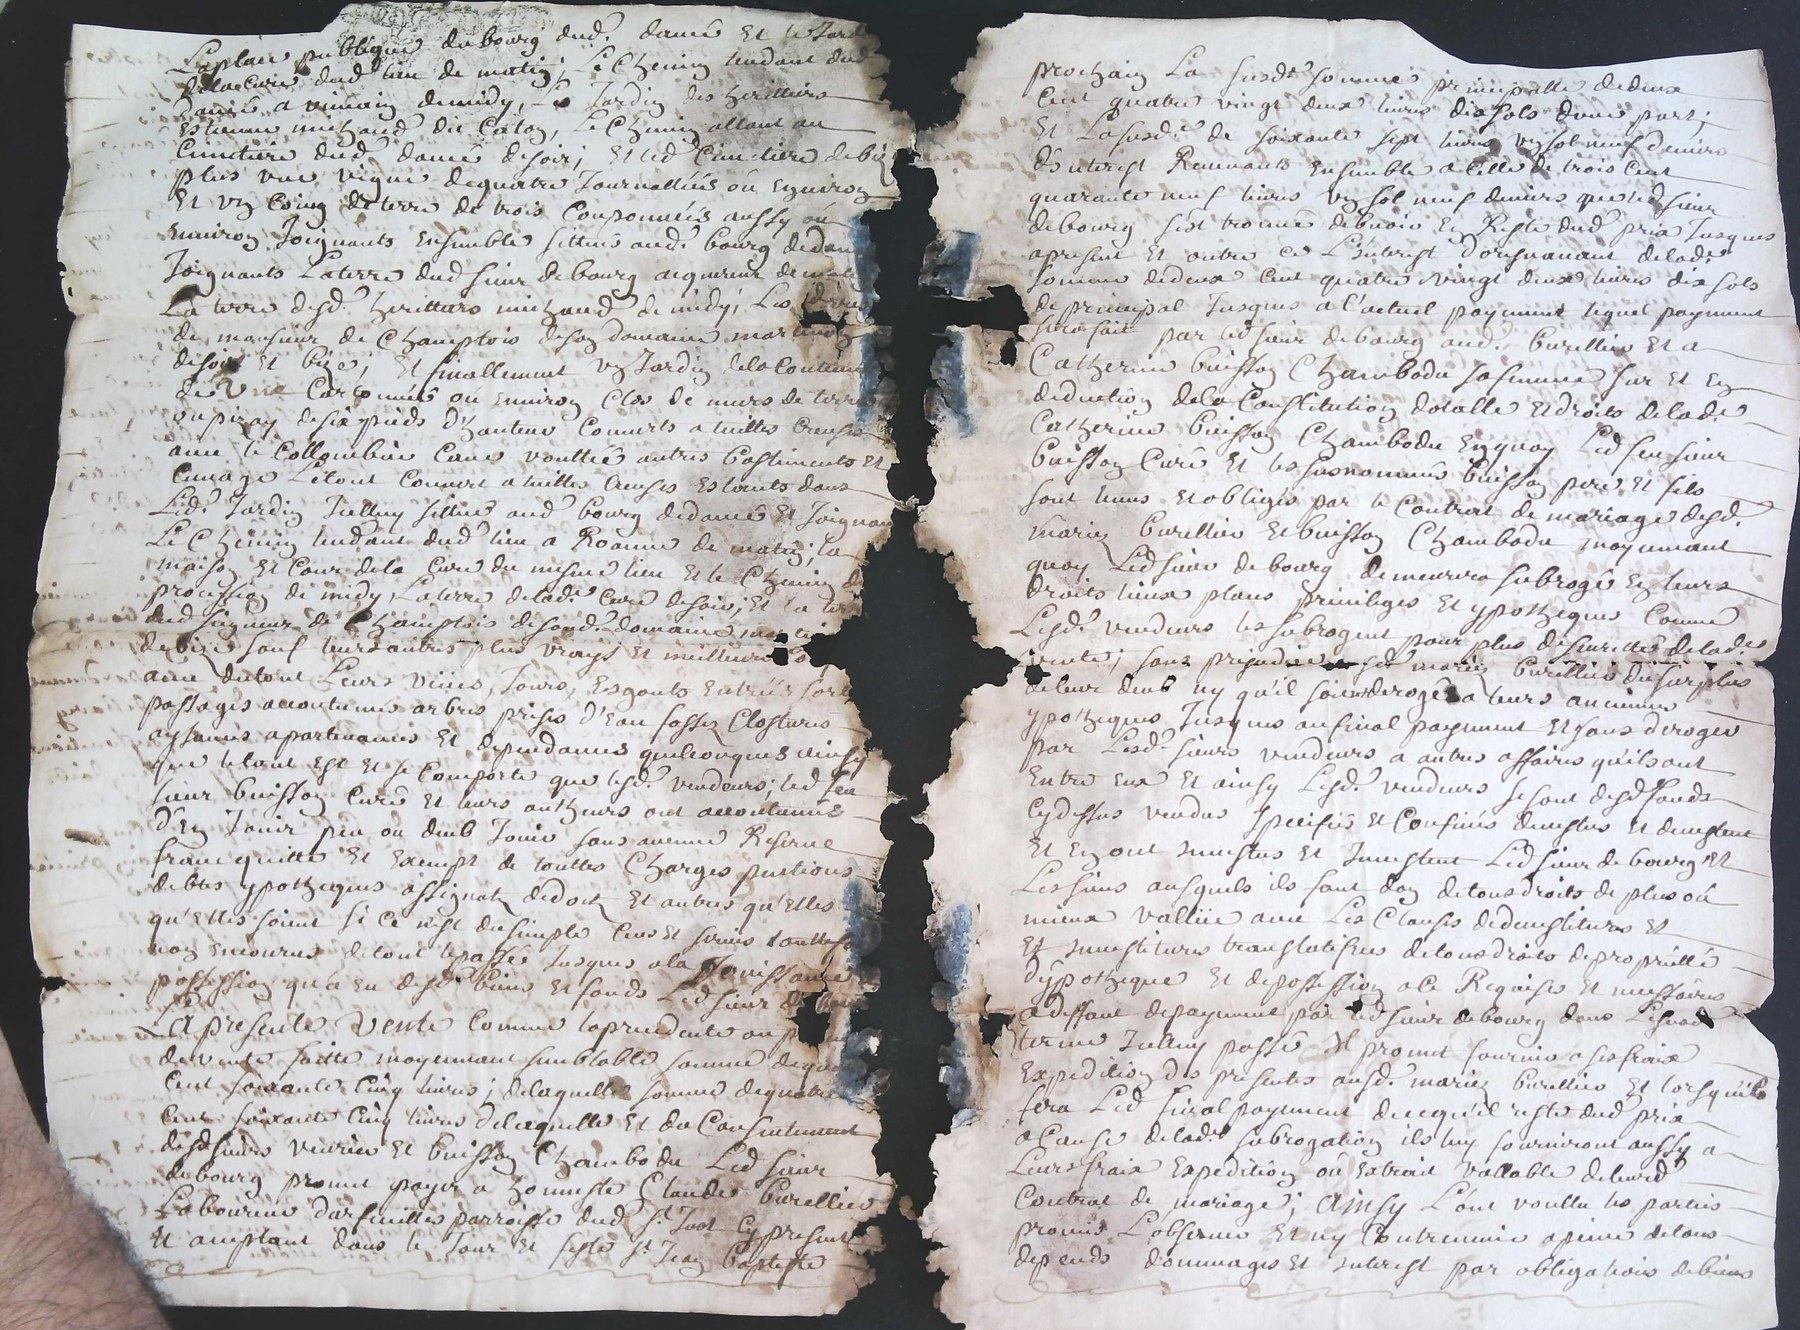 La place publique du bourg dud. dancé Et le Jard
dela cure dud lieu de matin; Le Chemin tendant dud
dancé a de midy, Le Jardin des heritiers
Estienne michaud dit Caton, Le Chemin allant au
Cimetiere dud. dancé de soir; Et led Cimetiere de bize
plus une vigne de quatre Journallées ou Environ
Et un Coing de terre de trois Couponnées aussy ou
Environ Joignants Ensemble sittués aud. bourg de dan
Joignants La terre dud sieur debourg acquereur de matin
La terre desd. heritiers michaud de midy; Les
de monsieur de Champtois de son domaine
de soir Et bize; Et finallement un Jardin dela Contenue
de Une Cartonnée ou Environ Clos de murs de terre
ou pizay de six pieds d'hauteur Couverts a tuilles Creuses
avec le Collombier Cave vouttée autres bastiments Et
Cuvage Le tout Couvert a tuilles Creuses Estants dans
Led. Jardin Jcelluy sittué aud. bourg de dancé Et Joignant
Le Chemin tendant dud lieu a Roanne de matin; la
maison Et Cour dela Cure du mesme lieu Et le Chemin de
procession de midy La terre delad. Cure de soir; Et la terre
dud seigneur de Champtois de sond. domaine
de bize sauf leurs autres plus vrays Et meilleurs
avec du tout Leurs veües, Jours, Esgouts Entrées sor
passages accoutumés arbres prises d'Eau fosses Clostures
aysances apartenances Et dependances quelconques ainsy
que le tout Est Et se Comporte que lesd. vendeurs; led feu
sieur buisson Curé Et leurs autheurs ont accoutumés
d'En Jouir peu ou deub Jouir sans aucune Reserve
franc quitte Et Exempt de touttes Charges pentions
debtes ypotheques assignat de dot Et autres qu'elles
qu'Elles soient si ce n'est du simple Cens Et servis touttefois
non Encourus de tout le passé Jusques a la Jouissance
possession qu'a Eu desd. biens Et fonds Led sieur de bour
La presente Vente Comme la precedente ou
de vente faitte moyennant semblable somme de quatre
Cent soixante Cinq livres; de laquelle somme de quatre
Cent soixante Cinq livres de laquelle Et du Consentement
desd sieurs Verrier Et buisson Chambodu Led sieur
debourg promet payer a honneste Claude burellier
Laboureur d'arfeuilles parroisse dud St Just Cy present
Et acceptant dans le Jour Et feste St Jean baptiste
prochain La susd. somme principalle de deux
Cent quatre vingt deux livres dix sols d'une part;
Et La susd. de soixante sept livres un sol neuf deniers
d'Interest Revenants Ensemble a Celle de trois Cent
quarante neuf livres un sol neuf deniers que led sieur
debourg s'est trouvé debvoir En Reste dud. prix Jusques
a present Et outre ce L'interest d'oresnavant delad.
somme de deux Cent quatre vingt deux livres dix sols
de principal Jusques a l'actuel payement lequel payement
sera fait par led sieur debourg aud. burellier Et a
Catherine buisson Chambodu sa femme sur Et En
deduction dela Constitution dotalle Et droits delad.
Catherine buisson Chambodu En quoy Led feu sieur
buisson Curé Et les susnommés buisson pere Et fils
sont tenus Et obligés par le Contract de mariage desd.
mariés burellier Et buisson Chambodu moyennant
quoy Led sieur debourg demeurera subrogé En leurs
droits lieux places privileges Et ypotheques Comme
Lesd. vendeurs les subrogent pour plus de seurette delad.
vente; sans prejudice mariés burellier du surplus
de leur deub ny qu'il soient derogé a leurs anciennes
ypotheques Jusques au final payement Et sans deroger
par Lesd. sieurs vendeurs a autres affaires qu'ils ont
Entre Eux Et ainsy Lesd. vendeurs se sont desd fonds
Cydessus vendus Specifiés Et Confinés demettus Et demettent
Et En ont Investus Et Investent Led sieur debourg Et
Les siens ausquels ils font don de tous droits de plus ou
mieux vallüe avec Les Clauses de devestitures Et
Et Investitures translatifves de tous droits de proprietté
d'ypotheque Et de possession a ce Requises Et necessaires
a deffaut de payement par led sieur debourg dans L'Esnoncé
terme Jcelluy passé Il promet fournir a ses fraix
Expedition des presentes ausd. mariés burellier Et lorsqu'ils
fera Led final payement de ce qu'il reste dud prix
a Cause delad. subrogation ils luy fourniront aussy a
Leurs fraix Expedition ou Extrait vallable de leurd
Contrat de mariage; Ainsy L'ont voullu les parties
promis L'observer Et ny Contrevenir a peine de tous
depends dommages Et Interest par obligations de biens